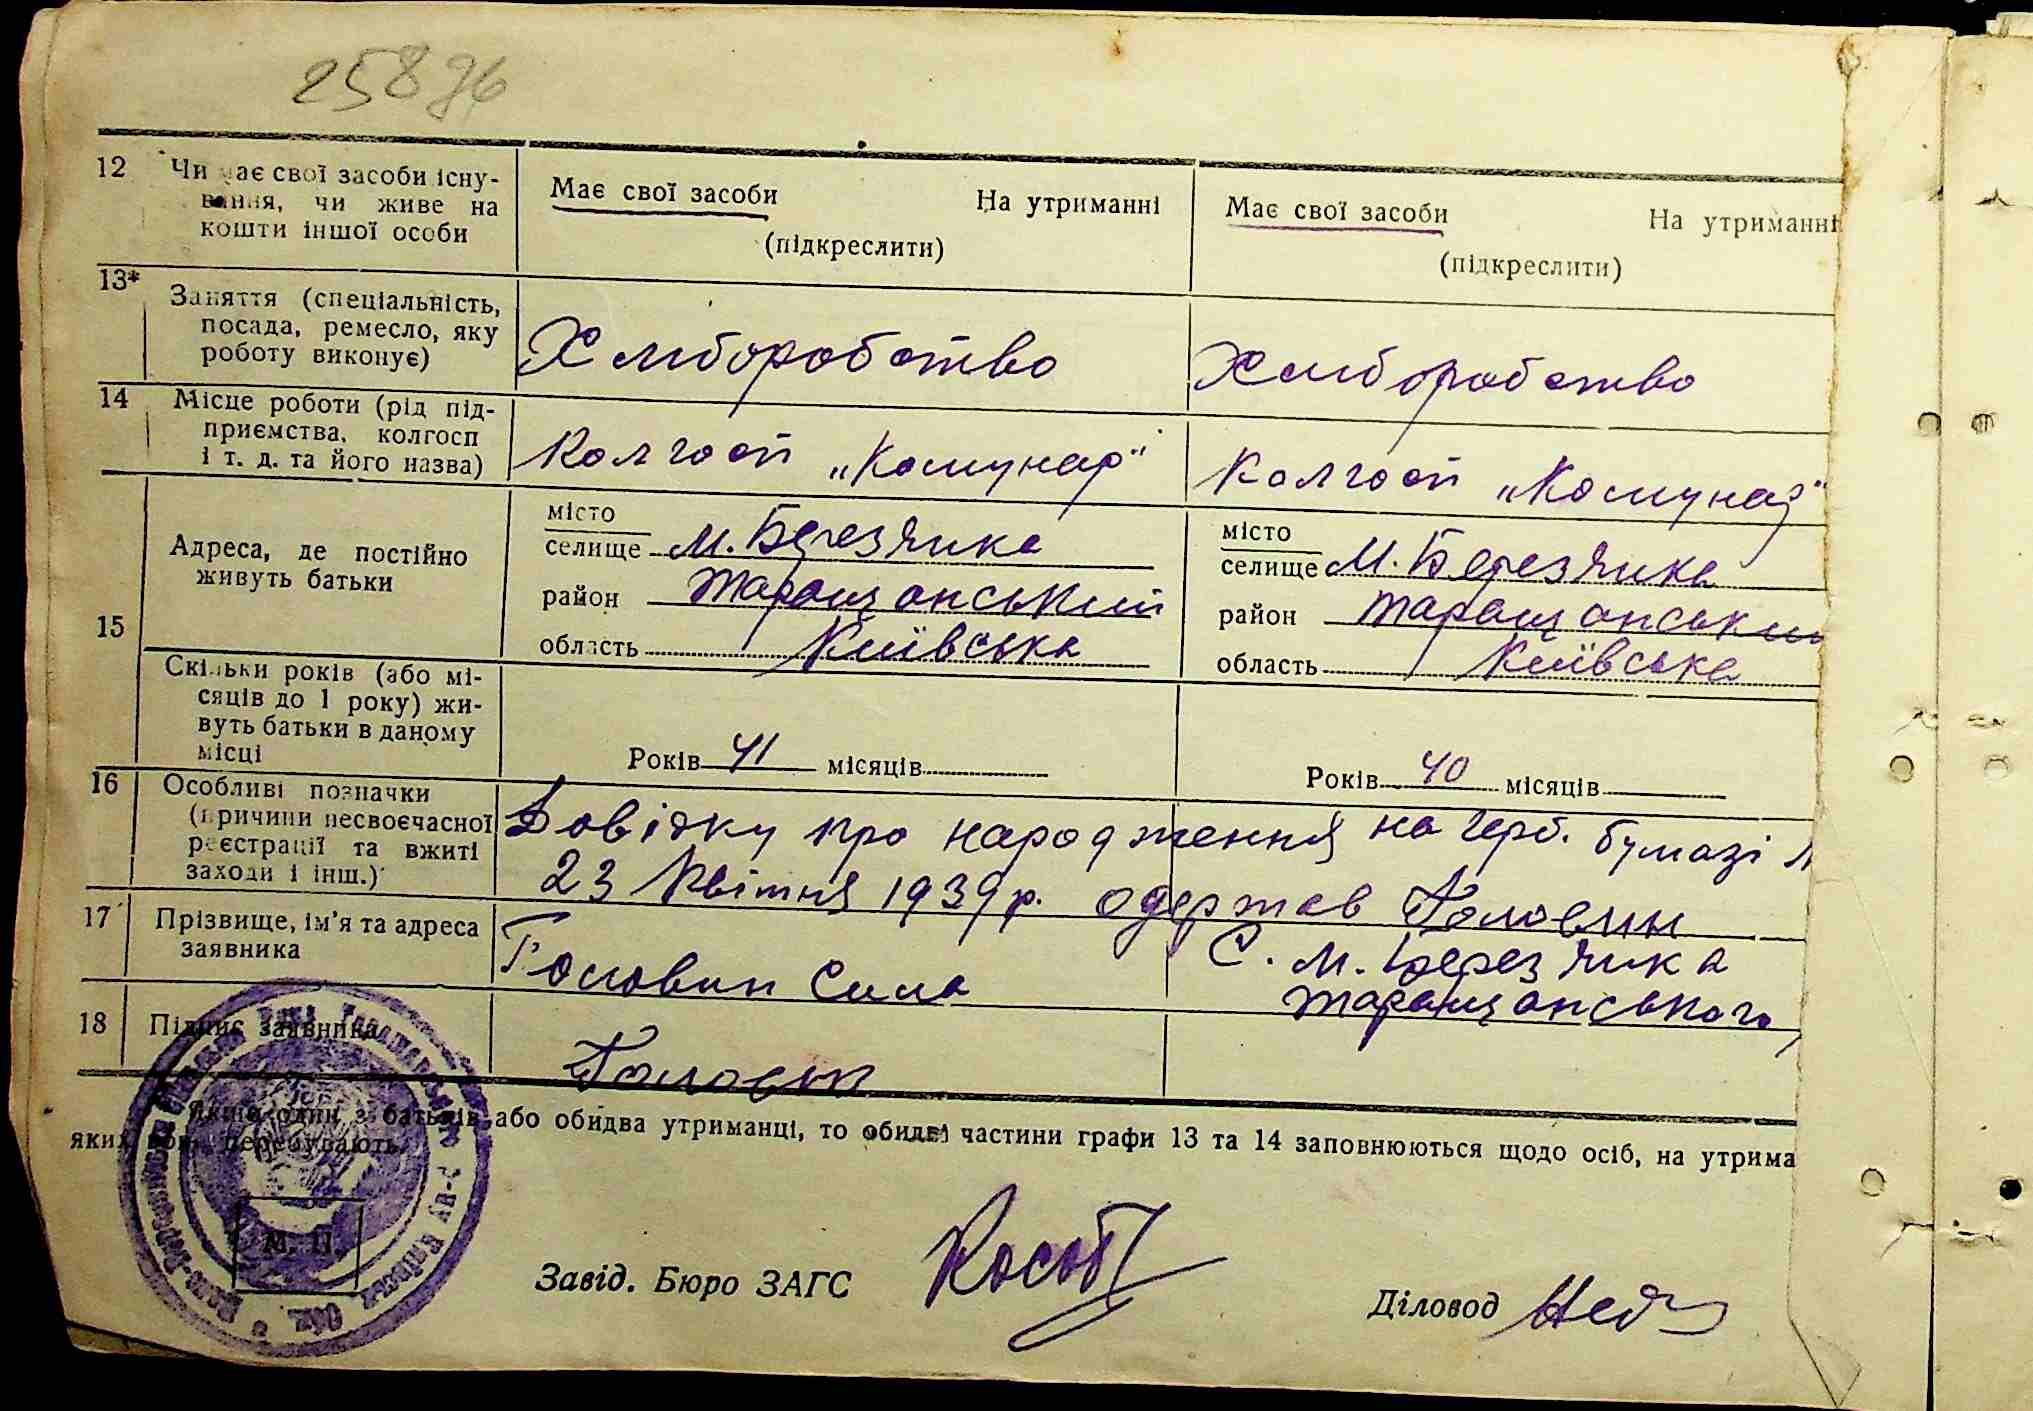 12 Чи має свої засоби існу-
вання, чи живе на
кошти іншої особи
Має свої засоби На утриманні
(підкреслити)
Має свої засоби На утриманні
(підкреслити)
13* Заняття (спеціальність,
посада, ремесло, яку
роботу виконує)
Хліборобство
Хліборобство
14 Місце роботи (рід під-
приємства, колгосп
і т. д. та його назва)
Колгосп „Комунар"
Колгосп „Комунар"
15 Адреса, де постійно
живуть батьки
місто
селище м. Березянка
район Таращанський
область Київська
місто
селище м. Березянка
район Таращанський
область Київська
Скільки років (або мі-
сяців до 1 року) жи-
вуть батьки в даному
місці
Років 41 місяців
Років 40 місяців
16 Особливі позначки
(причини несвоєчасної
реєстрації та вжиті
заходи і інш.)
Довідку про народження на герб. бумазі
23 Квітня 1939 р. одержав Головин
17 Прізвище, ім'я та адреса
заявника
Головин Сила
С. М. Березянка
Таращанського
18 Підпис заявника
Головин
Якщо один з батьків або обидва утриманці, то обидві частини графи 13 та 14 заповнюються щодо осіб, на утрима
яких вони перебувають.
М. П.
Завід. Бюро ЗАГС
Діловод